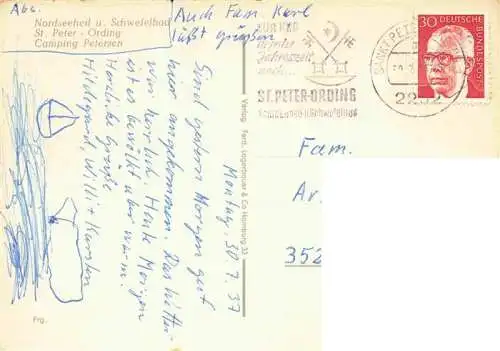 Abs.
Nordseeheil u. Schwefelbad
St. Peter - Ording
Camping Petersen
Auch Fam. Karl
läßt grüßen
Montag, 30.7.37
Sind gestern Morgen gut
hier angekommen. Das Wetter
war herrlich. Heute Morgen
ist es bewölkt aber warm.
Herzliche Grüße
Hildegard, Willi + Karsten
Frg.
Verlag Ferd. Lagerbauer & Co Hamburg 33
ZUR KUR
zu jeder
Jahreszeit
nach...
ST. PETER-ORDING
Nordseeheil u. Schwefelbad
SANKT PETER
2252
30
DEUTSCHE
BUNDESPOST
Fam.
Ar.
352